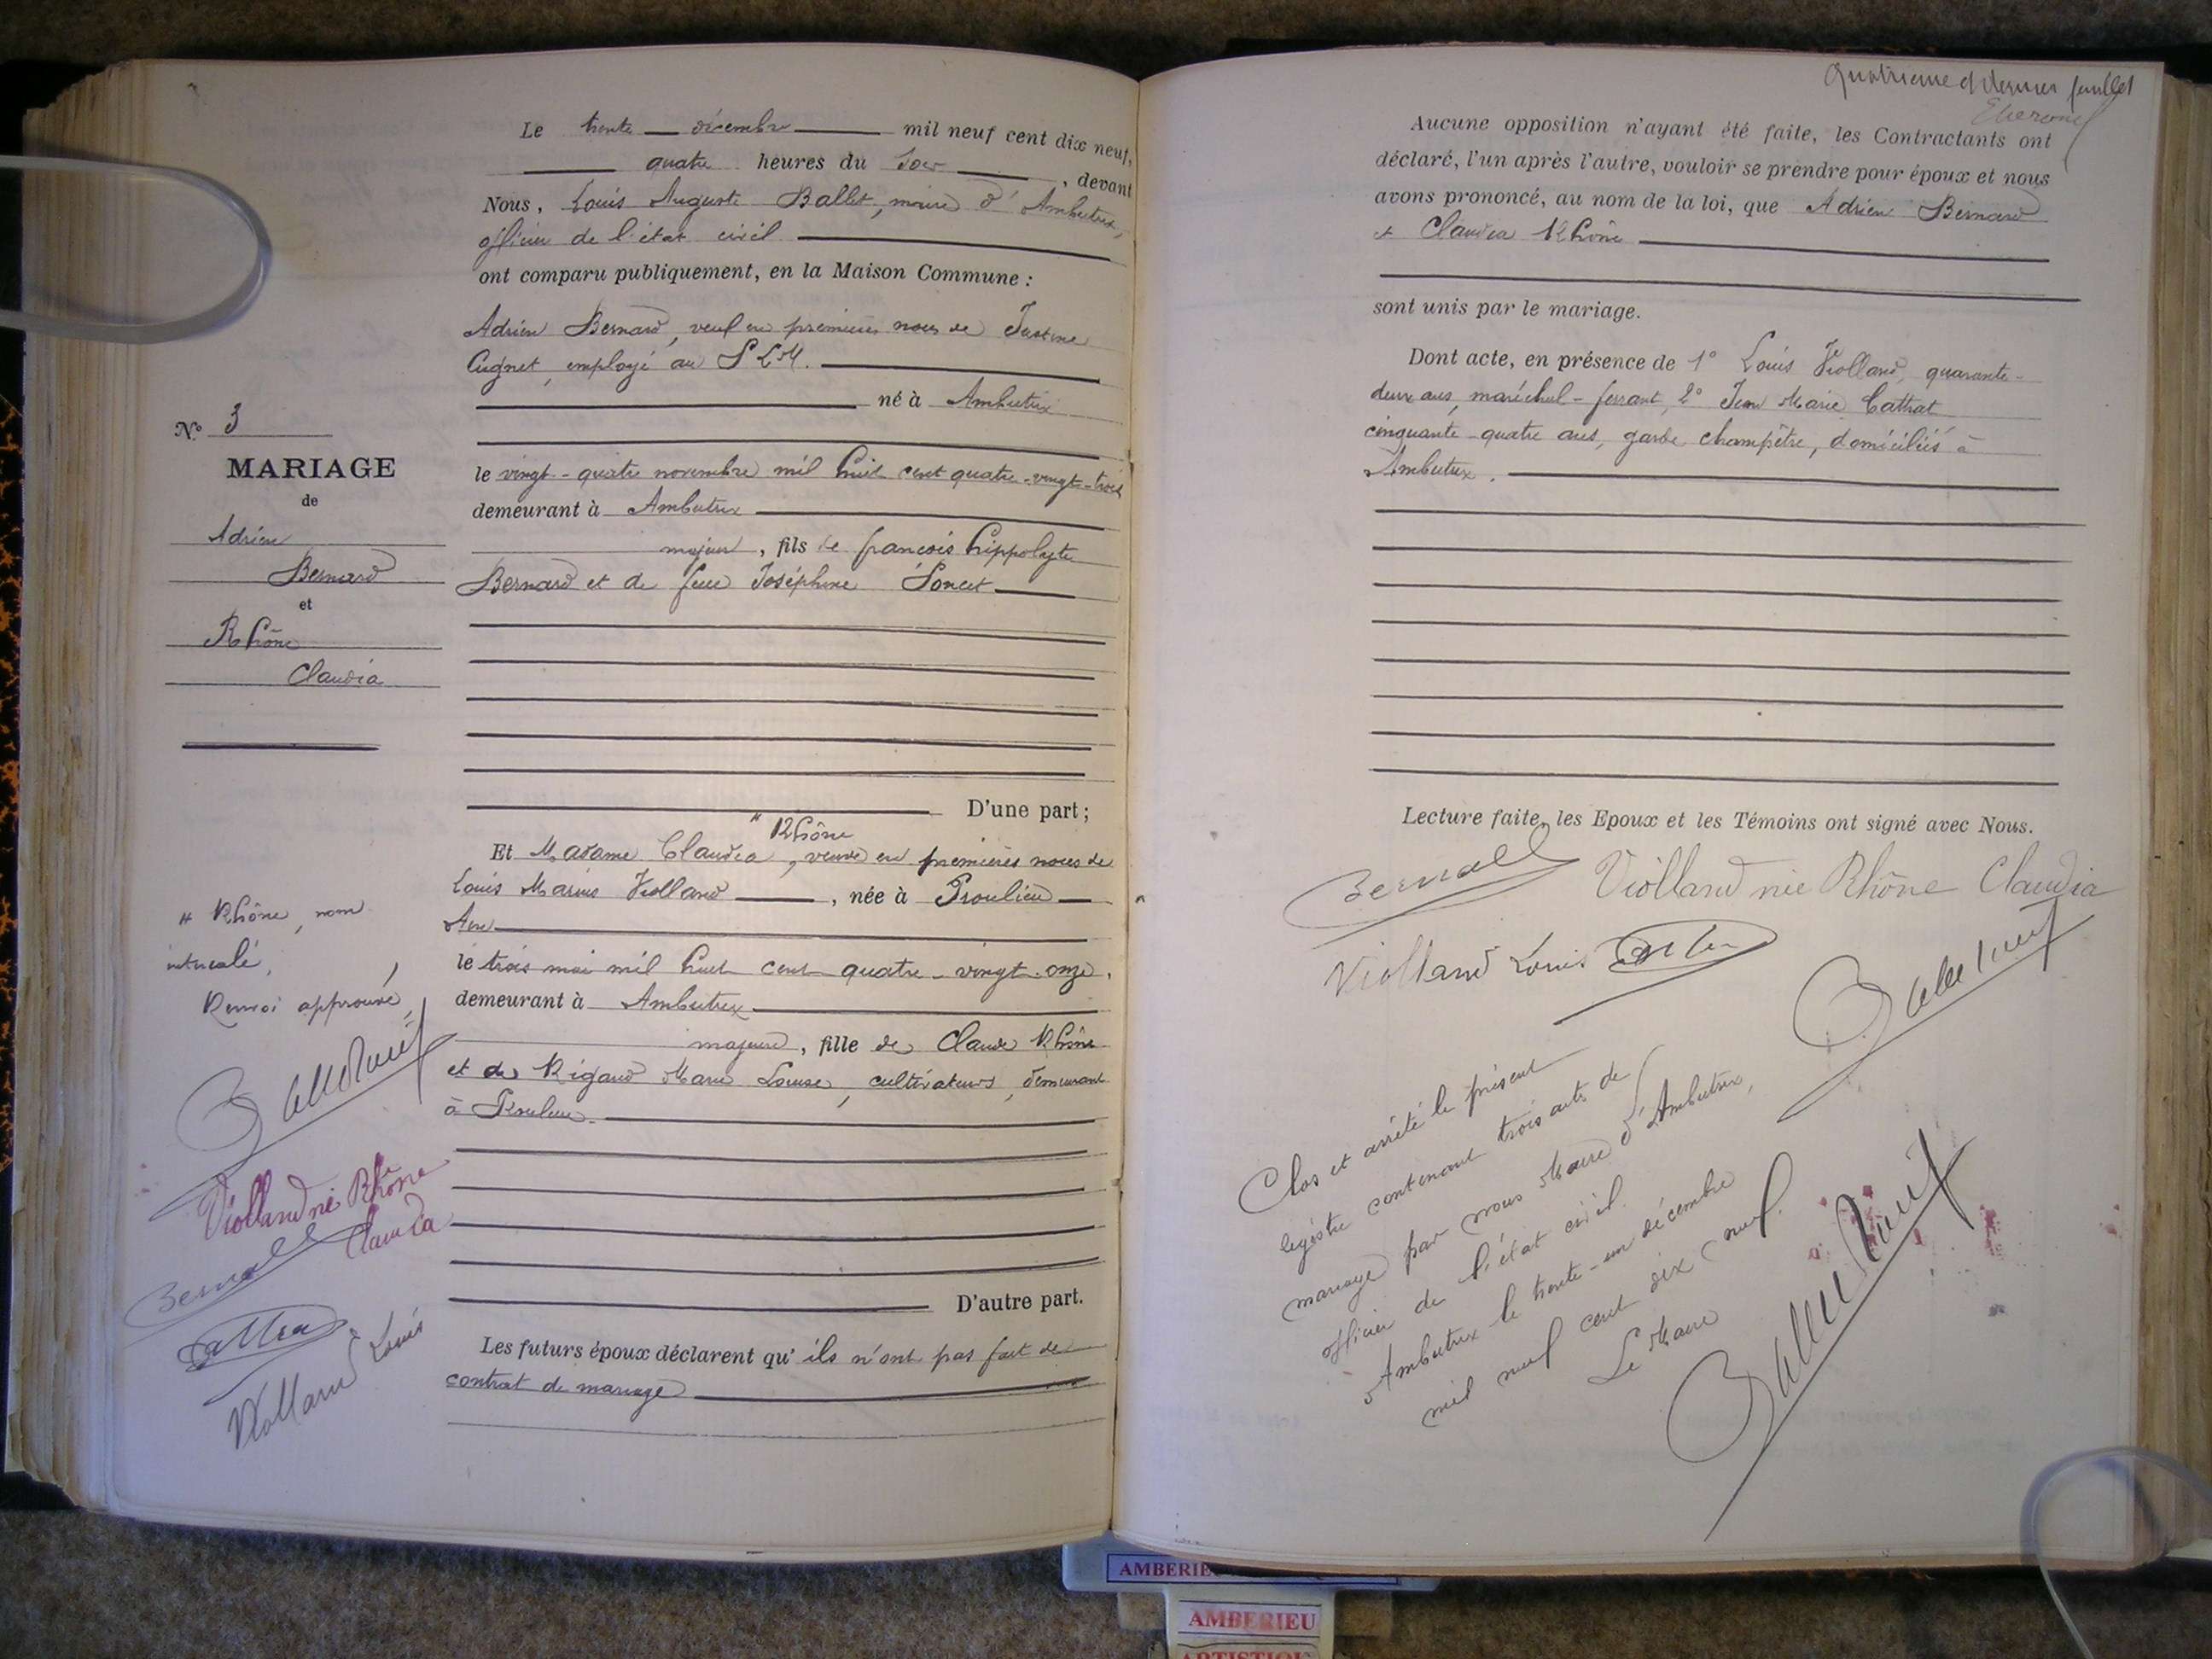 Le trente décembre mil neuf cent dix neuf,
quatre heures du soir, devant
Nous, Louis Auguste Ballet, maire d'Ambutrix,
officier de l'état civil
ont comparu publiquement, en la Maison Commune :
Adrien Bernard, veuf en premières noces de Justine
Cugnet, employé au P L M.
né à Ambutrix
le vingt-quatre novembre mil huit cent quatre-vingt-trois
demeurant à Ambutrix
majeur, fils de françois hippolyte
Bernard et de feue Joséphine Poncet
D'une part ;
" Rhône
Et Madame Claudia, veuve en premières noces de
Louis Marius Violland, née à Proulieu
Ain
le trois mai mil huit cent quatre-vingt-onze,
demeurant à Ambutrix
majeure, fille de Claude Rhône
et de Rigaud Marie Louise, cultivateurs, demeurant
à Proulieu.
D'autre part.
Les futurs époux déclarent qu'ils n'ont pas fait de
contrat de mariage
N° 3
MARIAGE
de
Adrien
Bernard
et
Rhône
Claudia
" Rhône, nom
intercalé,
Renvoi approuvé,
Violland née Rhône
Claudia
Bernard
Cattra
Violland Louis
quatrième et dernier feuillet
Aucune opposition n'ayant été faite, les Contractants ont
déclaré, l'un après l'autre, vouloir se prendre pour époux et nous
avons prononcé, au nom de la loi, que Adrien Bernard
et Claudia Rhône
sont unis par le mariage.
Dont acte, en présence de 1° Louis Violland, quarante-
deux ans, maréchal-ferrant, 2° Jean Marie Cattrat
cinquante-quatre ans, garde champêtre, domiciliés à
Ambutrix.
Lecture faite, les Epoux et les Témoins ont signé avec Nous.
Bernard Violland née Rhône Claudia
Violland Louis
Clos et arrêté le présent
registre contenant trois actes de
mariage par nous Maire d'Ambutrix,
officier de l'état civil.
Ambutrix le trente-un décembre
mil neuf cent dix neuf.
Le Maire
AMBERIE
AMBERIEU
ARTISTIQU